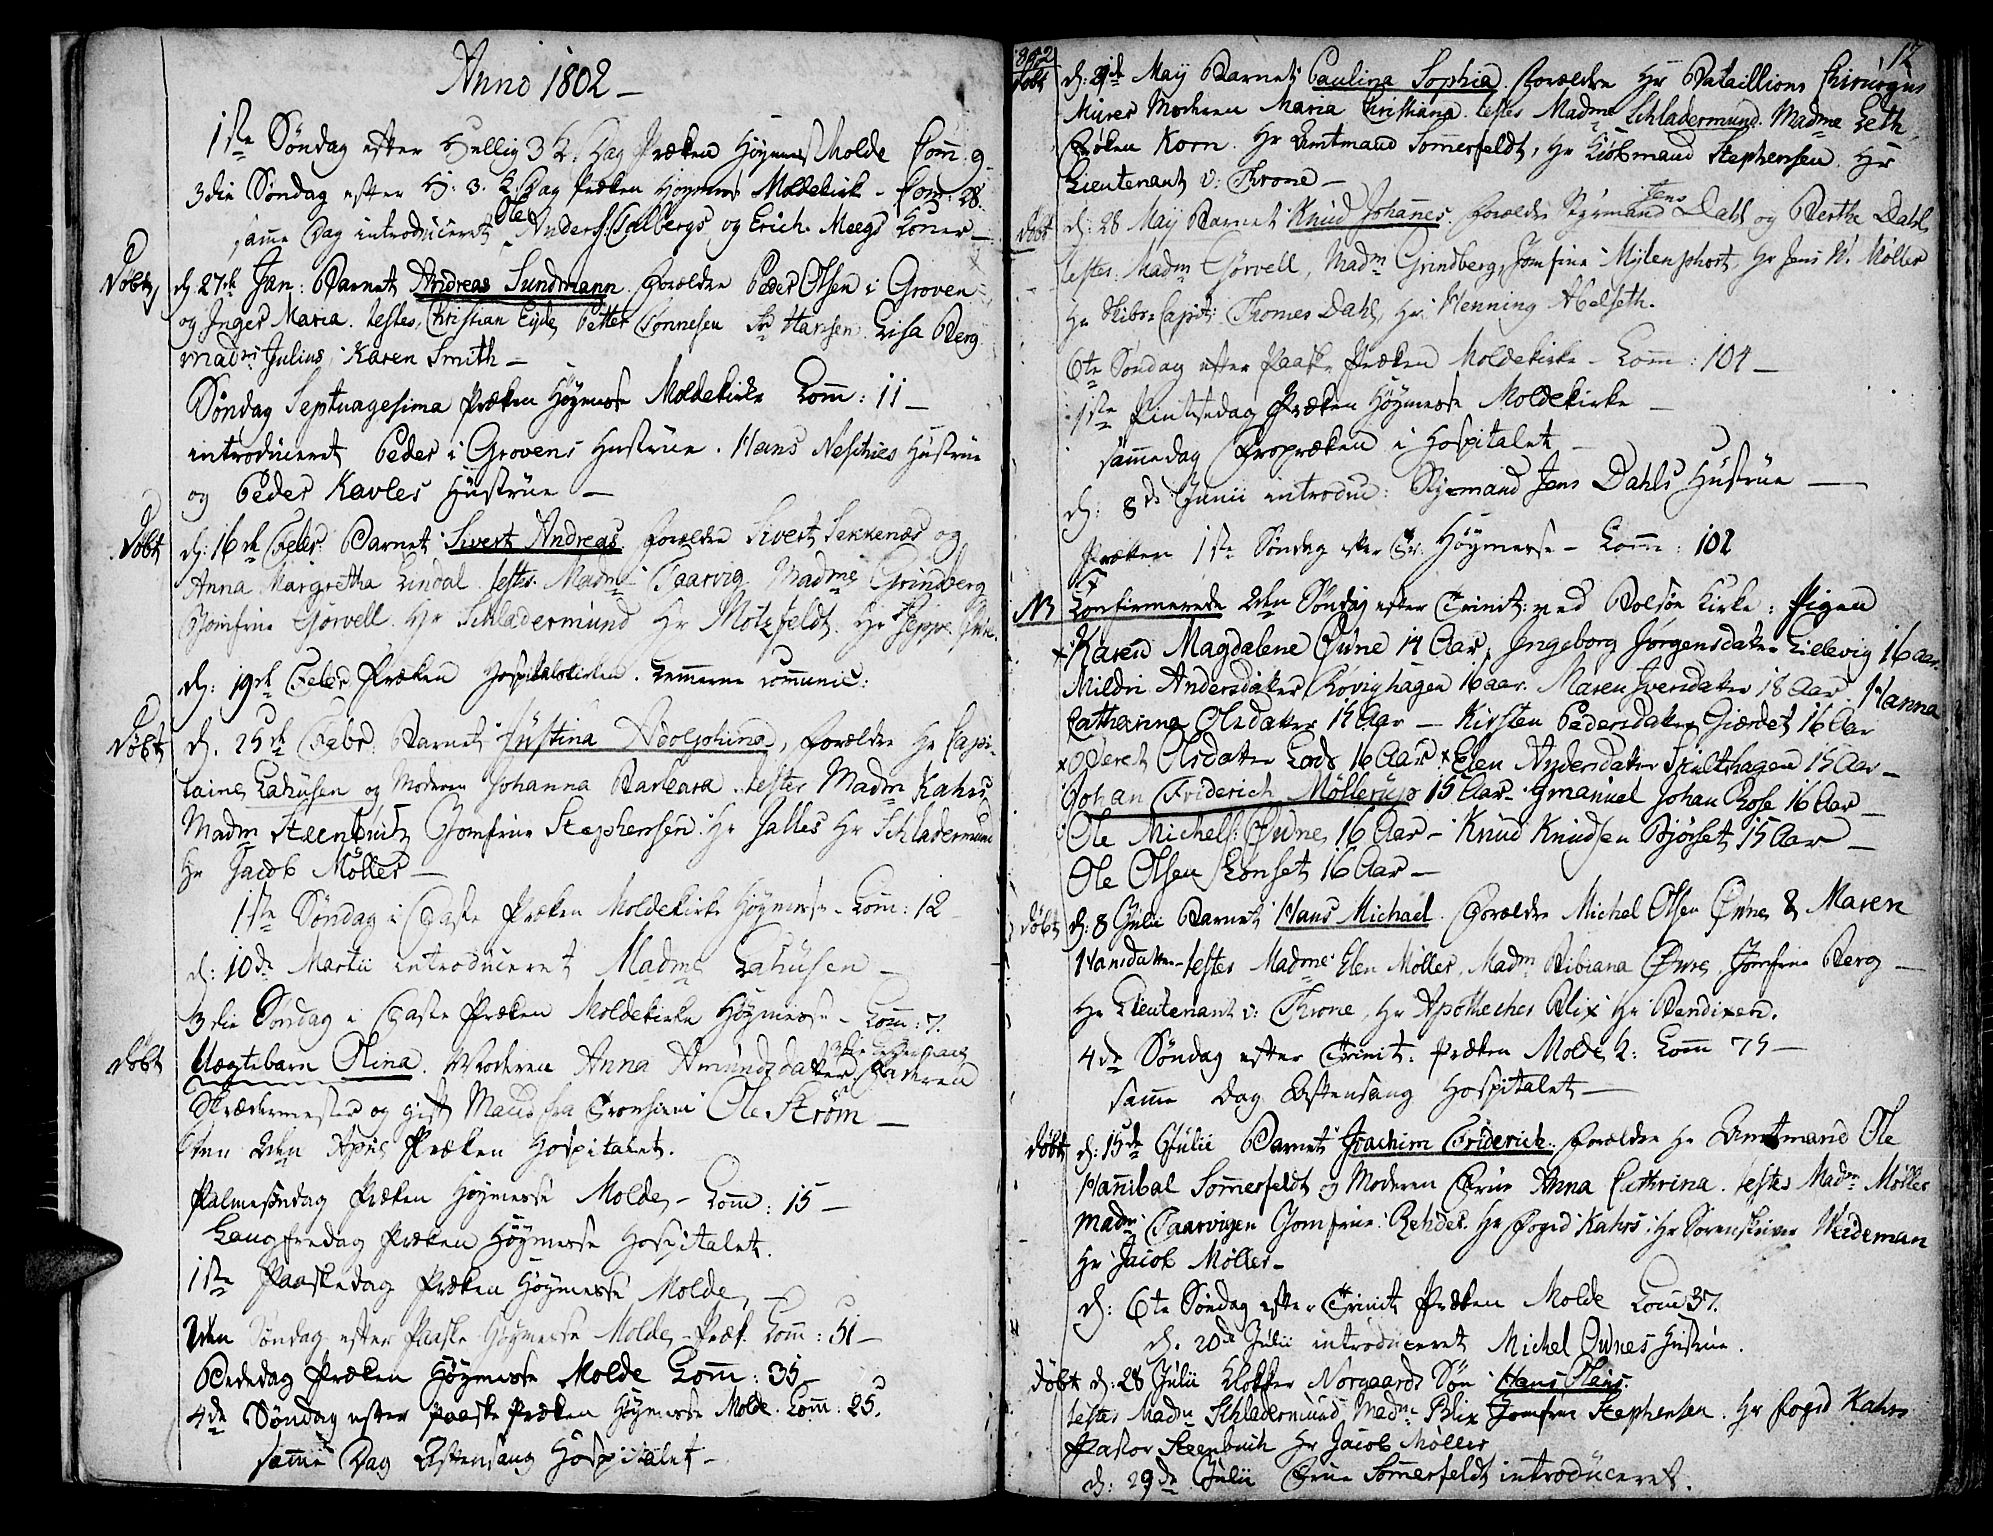 Anno 1802 –
1ste Søndag efter Hellig 3 K. Dag Præken Høymess Molde Com: 9
3die Søndag efter H: 3. K. Dag Præken Høymess Moldekirk – Com: 28.
samme Dag introduceret Ole Anders: Talbergs og Erich Meegs Koner –
Døbt d. 27de Jan: Barnet Andreas Sundmann. Forældre Peder Olsen i Groven
og Inger Maria. testes, Christian Eyde, Petter Tønnesen Hansen. Lisa Berg
Madme Julius, Karen Smith –
Søndag Septuagesima Præken Høymesse Moldekirke Com: 11 –
introduceret Peder i Grovens Hustrue. Hans Hustrue
og Peder Kavles Hustrue –
Døbt d: 16de Febr: Barnet Sivert Andreas Forældre Sivert Sekkenæs og
Anna Margretha Lindal. testes. Madme Taarvig Madme Grindberg
Jomfrue Gørvell. Hr Schladermund Hr Motzfeldt. Hr Jeppe
d: 19de Febr Præken Hospitalskirken. Lemmerne communic:
Døbt d. 25de Febr: Barnet Justina Adolphina, Forældre Hr Capi-
taine Lahusen og Moderen Johanna Barbara. testes Madm Kahrs
Madm Steenbuch Jomfrue Stephensen. Hr Salles Hr Schladermund
Hr Jacob Møller –
1ste Søndag i Faste Præken Moldekirke Høymesse – Com: 12
d: 10de Martii introduceret Madme Lahusen –
3die Søndag i Faste Præken Moldekirke Høymesse – Com: 7.
Døbt Uægtebarn Olina. Moderen Anna Amundsdatter Faderen
Skrædermester og gift Mand fra Tronhiem Ole Strøm –
Den 2den April Præken Hospitalet.
Palmesøndag Præken Høymesse Molde – Com: 15 –
Langfredag Præken Høymesse Hospitalet.
1ste Paaskedag Præken Høymesse Molde, –
2den Søndag efter Paaske Høymesse Molde – Præk. Com: 51 –
Bededag Præken Høymesse Molde Com: 35 –
4de Søndag efter Paaske Præken Høymesse Molde. Com: 25.
samme Dag Aftensang Hospitalet –
1802
17
Døbt d: 21de May Barnet Paulina Sophia. Forældre Hr Bataillions Chirurgus
Mürer Moderen Maria Christiana. testes Madme Schladermund. Madme Leth
Frøken Korn. Hr Amtmand Sommerfeldt, Hr Kiøbmand Stephensen. Hr
Lieutenant v: Throne –
Døbt d: 28 May Barnet Knud Johannes. Forældre Styrmand Jens Dahl og Berthe Dahl,
testes. Madm Gørvell, Madm Grindberg, Jomfrue Mylenphort, Hr Jens W. Møller
Hr Skibs-Capit: Thomes Dahl, Hr. Henning Abelseth.
6te Søndag efter Paaske Præken Moldekirke – Com: 104 –
1ste Pintsedag Præken Høymesse Moldekirke –
sammedag Froprædken i Hospitalet –
d: 8de Junii introdu: Styrmand Jens Dahls Hustrue –
Præken 1ste Søndag efter Tr: Høymesse – Com: 102
NB Confirmerede 2den Søndag efter Trinit: ved Bolsøe Kirke: Pigen
Karen Magdalene Øvne 14 Aar, Ingeborg Jørgensdatter Lillevig 16 aar.
Mildri Andersdatter Røvighagen 16 aar. Maren Iversdatter 18 Aar. Hanna
Catharina Olsdatter 15 Aar – Kirsten Pedersdatter Giærdet 16 Aar
Beret Olsdatter Lods 16 Aar Elen Andersdatter Skultshagen 15 Aar –
Johan Friderich Møllerup 15 Aar – Emanuel Johan Rose 16 Aar –
Ole Michels: Øvne, 16 Aar – Knud Knudsen Bjørset 15 Aar –
Ole Olsen Konset 16 Aar –
Døbt d: 8 Julii Barnet Hans Michael. Forældre Michel Olsen Øvne & Maren
Hansdatter – testes Madme Elen Møller. Madm Bibiana Øvne, Jomfrue Berg –
Hr Lieutenant v: Throne, Hr Apothecher Blix Hr Bendixen.
4de Søndag efter Trinit: Præken Molde K: Com 75 –
samme Dag Aftensang Hospitalet –
Døbt d: 15de Julii Barnet Joachim Friderich. Forældre Hr Amtmand Ole
Hannibal Sommerfeldt og Moderen Frue Anna Cathrina. testes Madm Møller
Madm Taarvigen Jomfrue: Rehder. Hr Foged Kahrs. Hr Sorenskriver Weideman
Hr Jacob Møller –
d: 6te Søndag efter Trinit Præken Molde Com 37.
d. 20de Julii introduceret Michel Øvnes Hustrue.
Døbt d: 28 Julii Klokker Norgaards Søn Hans Olaus.
testes Madm Schladermund Madm Blix Jomfrue Stephensen. Hr Foged Kahrs
Pastor Steenbuch Hr Jacob Møller
d: 29de Julii Frue Sommerfeldt introduceret.